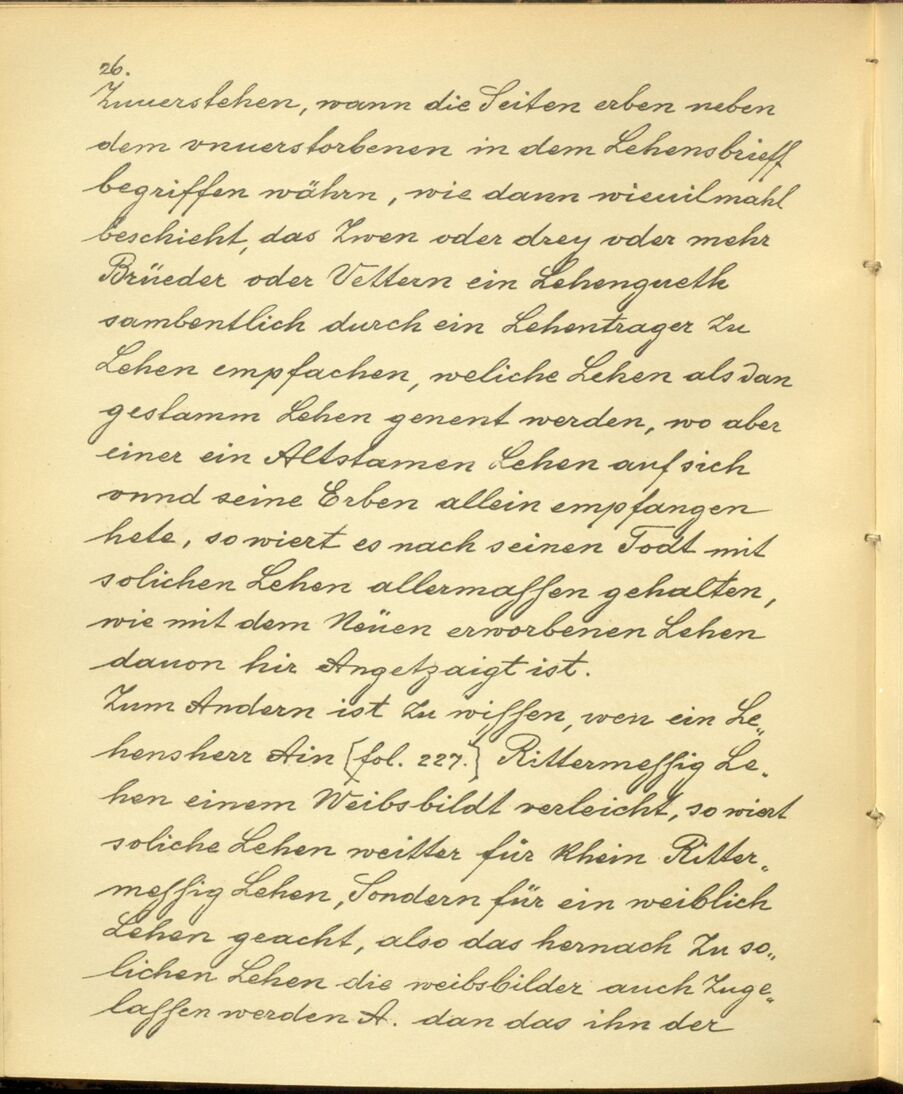 26.
Zuuerstehen, wann die Seiten erben neben
dem vnuerstorbenen in dem Lehensbrieff
begriffen währn, wie dann wieuilmahl
beschieht, das Zwen oder drey oder mehr
Brüeder oder Vettern ein Lehengueth
sambentlich durch ein Lehentrager Zu
Lehen empfachen, weliche Lehen als dan
gestamm Lehen genent werden, wo aber
einer ein Altstamen Lehen auf sich
vnnd seine Erben allein empfangen
hete, so wiert es nach seinen Todt mit
solichen Lehen allermassen gehalten,
wie mit dem Neüen erworbenen Lehen
dauon hir Angetzaigt ist.
Zum Andern ist Zu wissen, wen ein Le„
hensherr Ain {fol. 227.} Rittermessig Le„
hen einem Weibsbildt verleicht, so wiert
soliche Lehen weitter für khein Ritter„
messig Lehen, Sondern für ein weiblich
Lehen geacht, also das hernach Zu so„
lichen Lehen die weibsbilder auch Zuge„
lassen werden A. dan das ihn der